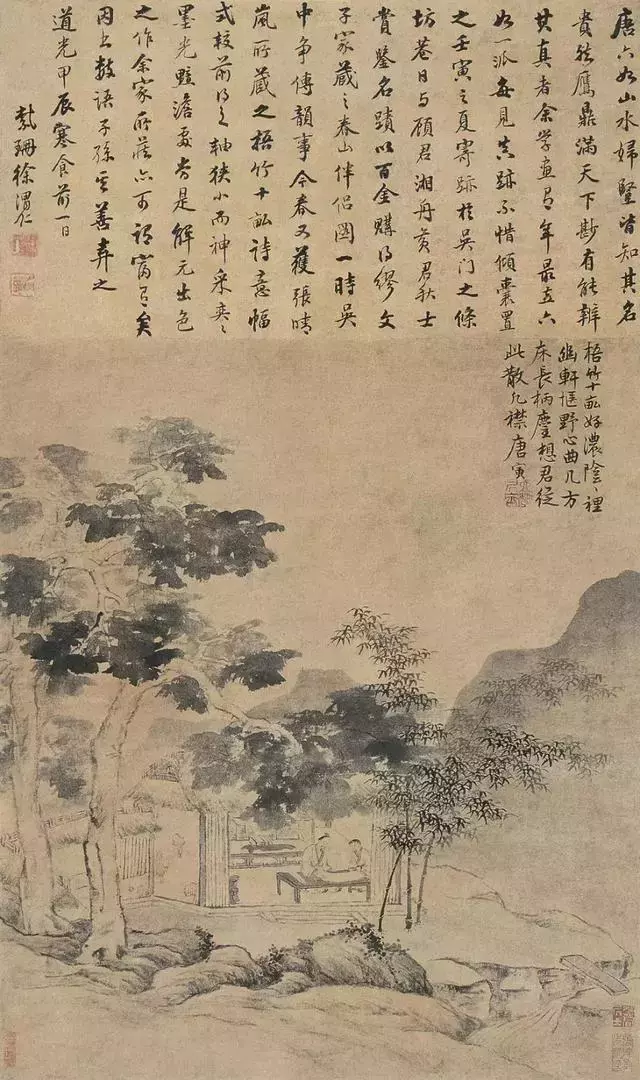 唐六如山水婦豎皆知其名
貴然贗鼎滿天下尠有能辨
其真者余学畫有年最立六
如一派每見真跡不惜傾囊置
之壬寅之夏寄跡於吴门之條
坊巷日与顾君湘舟黄君秋士
賞鑒名蹟以百金購得繆文
子家藏之春山伴侣圖一時吴
中争傳韻事今春又獲張晴
嵐所藏之梧竹十畝詩意幅
式較前得之軸狹小而神采奕〻
墨光黯澹處尚是解元出色
之作余家所藏亦可謂富有矣
因书数語子孫其善弆之
道光甲辰寒食前一日
紫珊徐渭仁
梧竹十畝好濃陰〻裡
幽軒愜野心曲几方
床長柄麈想君從
此散凡襟唐寅